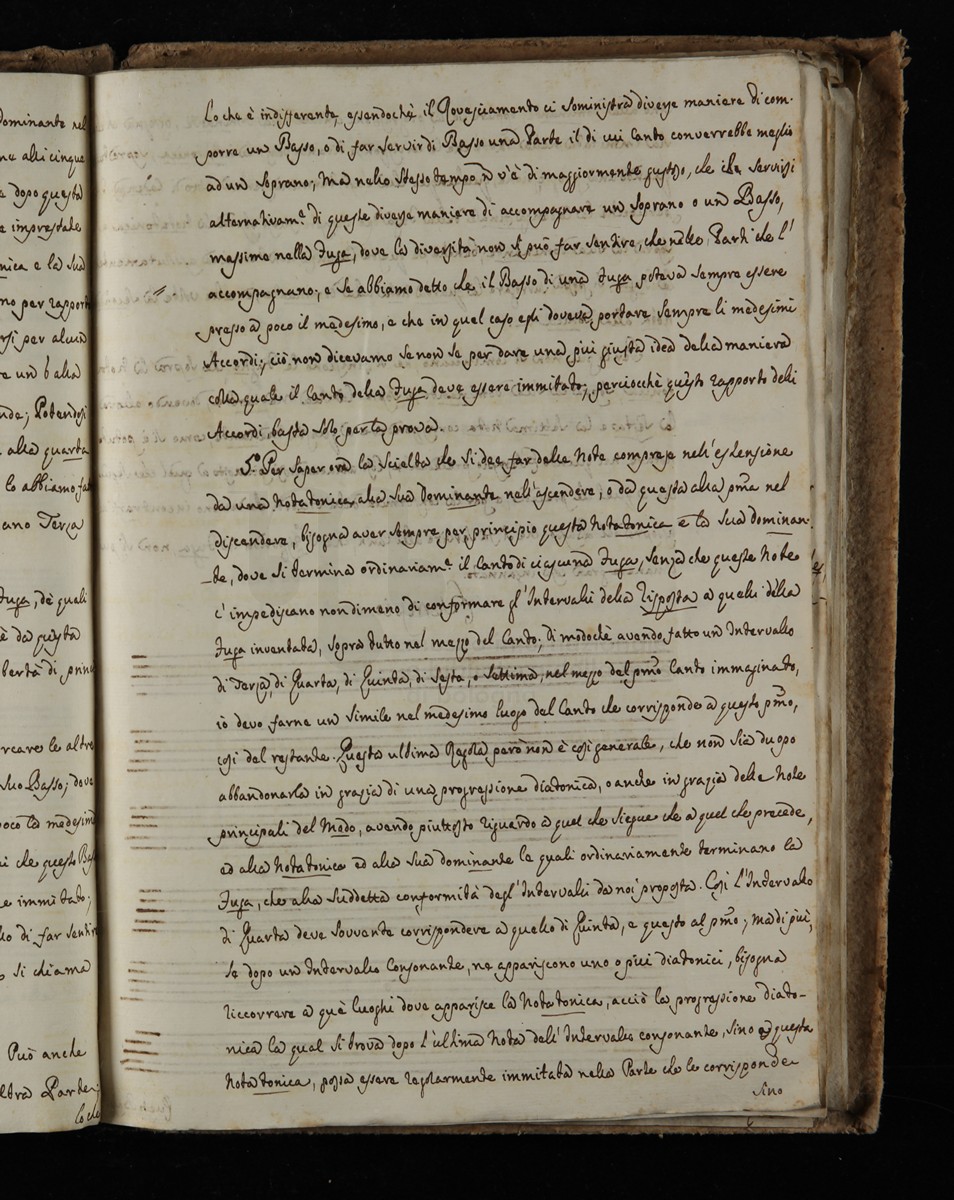 Dominante nel
alli cinque
dopo questa
e imprestate
nica e la sua
no per rapport
rsi per alcun
re un b alla
nde; Potendosi
alla quarta
lo abbiamo fat
ano Terza
Fuga, de quali
è da questa
bertà di prin
rcare le altre
suo Basso; dove
poco la medesim
i che questo Bas
e immitato;
lo di far sentire
si chiama
Può anche
ltra Parte;
lo che
Lo che è indifferente, essendochè il Rovesciamento ci soministra diverse maniere di com-
porre un Basso, o di far servir di Basso una Parte il di cui Canto converrebbe meglio
ad un Soprano; Ma nello stesso tempo v'è di maggiormente gustoso, che che servirsi
alternativam.e di queste diverse maniere di accompagnare un Soprano o un Basso,
massime nella Fuga, dove la diversità non si può far sentire, che nelle Parti che l'
accompagnano; e se abbiamo detto che il Basso di una Fuga poteva sempre essere
presso a poco il medesimo, e che in quel caso egli doveva portare sempre li medesimi
Accordi; ciò non dicevamo se non se per dare una più giusta idea della maniera
colla quale il Canto della Fuga deve essere immitato; perciocchè questo rapporto delli
Accordi, basta solo per la prova.
5.o Per saper ora la scielta che si dee far delle Note comprese nell'estensione
da una Nota tonica alla sua Dominante nell'ascendere, o da questa alla pma nel
discendere, bisogna aver sempre per principio questa Nota tonica e la sua dominan-
te, dove si termina ordinariam.e il Canto di ciascuna Fuga, senza che queste Note
c'impediscano nondimeno di conformare gl'Intervalli della Risposta a quelli della
Fuga inventata, sopra tutto nel mezzo del Canto; di modochè avendo fatto un Intervallo
di Terza, di Quarta, di Quinta, di Sesta, o Settima, nel mezzo del pmo Canto immaginato,
io devo farne un simile nel medesimo luogo del Canto che corrisponde a questo pmo,
così del restante. Questa ultima Regola però non è così generale, che non sia duopo
abbandonarla in grazia di una progressione diatonica, o anche in grazia delle Note
principali del Modo, avendo piuttosto riguardo a quel che siegue che a quel che precede,
ed alla Nota tonica ed alla sua dominante le quali ordinariamente terminano la
Fuga, che alla suddetta conformità degl'Intervalli da noi proposta. Così l'Intervallo
di Quarta deve sovvente corrispondere a quello di Quinta, e questo al pmo; ma di più,
se dopo un Intervallo Consonante, ne appariscono uno o più diatonici, bisogna
riccorrere a què luoghi dove apparisce la Nota tonica, acciò la progressione diato-
nica la qual si trova dopo l'ultima Nota dell'Intervallo consonante, sino a questa
Nota tonica, possa essere regolarmente immitata nella Parte che le corrisponde
sino